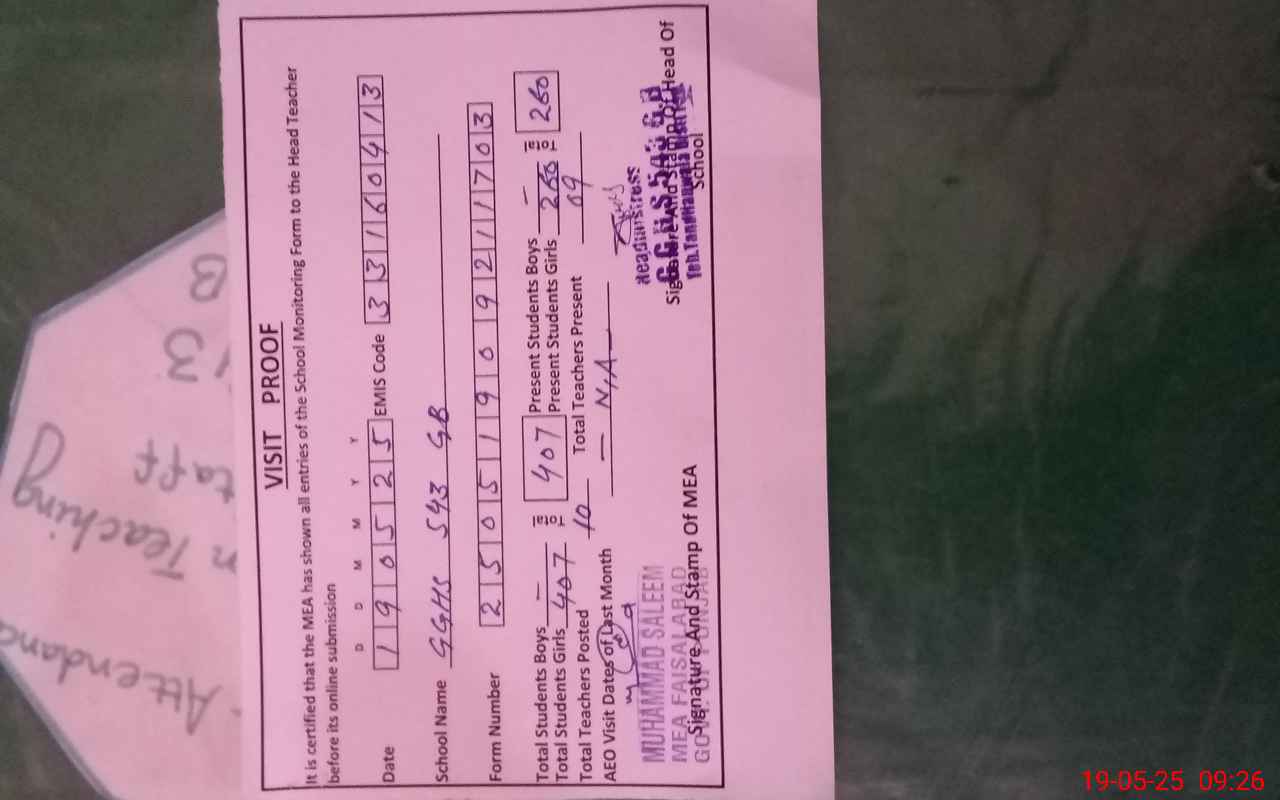 VISIT PROOF
It is certified that the MEA has shown all entries of the School Monitoring Form to the Head Teacher
before its online submission
D D M M Y Y
Date 1 9 0 5 2 5 EMIS Code 3 3 1 6 0 4 1 3
School Name GGHS 543 GB
Form Number 2 5 0 5 1 9 0 9 2 1 1 7 0 3
Total Students Boys — Total 407 Present Students Boys — Total 260
Total Students Girls 407 Present Students Girls 260
Total Teachers Posted 10 Total Teachers Present 09
AEO Visit Dates of Last Month — N,A —
MUHAMMAD SALEEM
MEA FAISALABAD
GOVT. OF PUNJAB
Signature And Stamp Of MEA
Headmistress
G.G.H.S 543 G.B
Teh.Tandlianwala
Signature And Stamp Of Head Of
School
Attendanc
n Teaching
taff
13
B
19-05-25 09:26